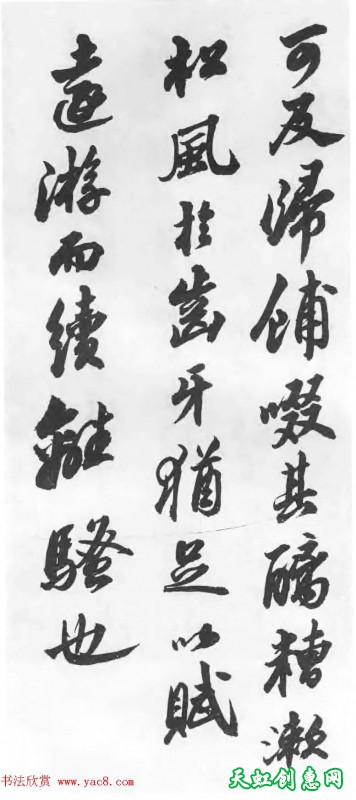 可反歸餔啜其醨糟漱
松風於齒牙猶足以賦
遠游而續離騷也
书法欣赏 www.yac8.com
天虹创意网